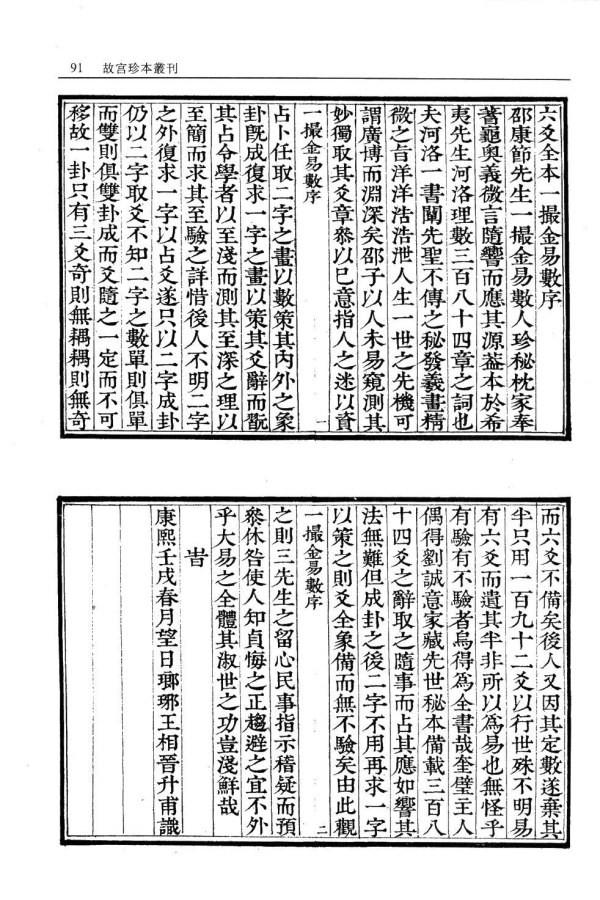 91 故宮珍本叢刊
六爻全本一撮金易數序
邵康節先生一撮金易數人珍秘枕家奉
蓍龜奧義微言隨響而應其源葢本於希
夷先生河洛理數三百八十四章之詞也
夫河洛一書闡先聖不傳之秘發義畫精
微之旨洋洋浩浩泄人生一世之先機可
謂廣博而淵深矣邵子以人未易窺測其
妙獨取其爻章叅以已意指人之迷以資
一撮金易數序 一
占卜任取二字之畫以數策其內外之象
卦旣成復求一字之畫以策其爻辭而翫
其占令學者以至淺而測其至深之理以
至簡而求其至驗之詳惜後人不明二字
之外復求一字以占爻遂只以二字成卦
仍以二字取爻不知二字之數單則俱單
而雙則俱雙卦成而爻隨之一定而不可
移故一卦只有三爻奇則無耦耦則無奇
而六爻不備矣後人又因其定數遂棄其
半只用一百九十二爻以行世殊不明易
有六爻而遺其半非所以為易也無怪乎
有驗有不驗者烏得為全書哉奎璧主人
偶得劉誠意家藏先世秘本備載三百八
十四爻之辭取之隨事而占其應如響其
法無難但成卦之後二字不用再求一字
以策之則爻全象備而無不驗矣由此觀
一撮金易數序 二
之則三先生之留心民事指示稽疑而預
叅休咎使人知貞悔之正趨避之宜不外
乎大易之全體其淑世之功豈淺鮮哉
旹
康熙壬戌春月望日瑯琊王相晉升甫識